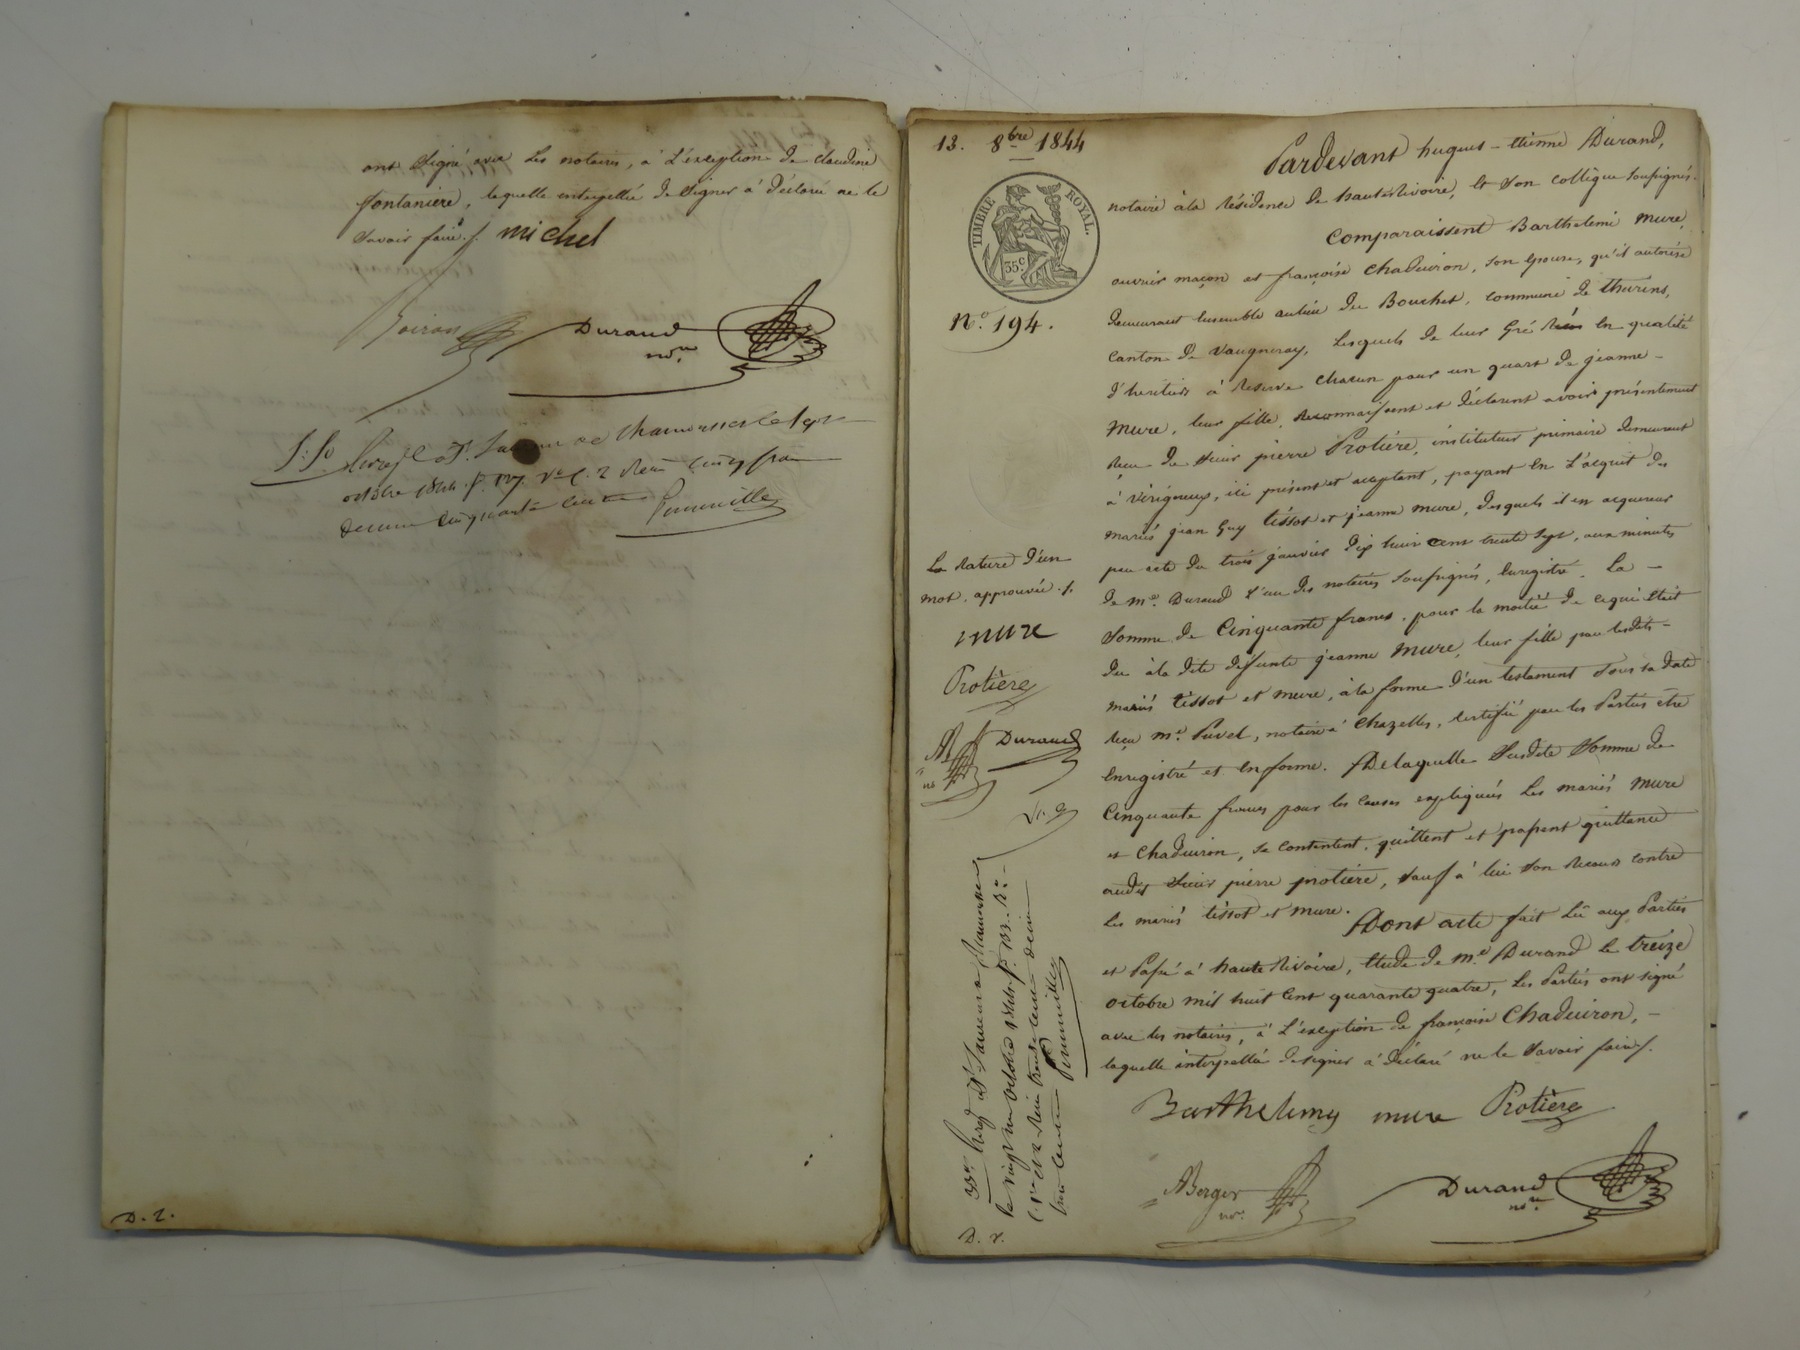 ont signé avec les notaires, à l'exception de claudine
fontanière, laquelle interpellée de signer a déclaré ne le
savoir faire./. michel
Boiron Durand
nore
octobre 1844. f.
D. 2.
13. 8bre 1844
TIMBRE ROYAL.
35c
No. 194.
Pardevant hugues-étienne Durand,
notaire à la résidence de hauterivoire, et son collègue soussignés.
Comparaissent Barthelemi Mure,
ouvrier maçon et françoise Chaduiron, son épouse, qu'il autorise
demeurant ensemble au lieu du Bouchet, commune de thurins,
canton de Vaugneray, lesquels de leur gré en qualité
d'héritiers à réserve chacun pour un quart de jeanne -
Mure, leur fille, Reconnaissent et déclarent avoir présentement
reçu de sieur pierre Protière, instituteur primaire demeurant
à vérigneux, ici présent et acceptant, payant en l'acquit des
mariés jean Guy tissot et jeanne mure, desquels il en acquereur
par acte du trois janvier dix huit cent trente sept, aux minutes
de me. Durand l'un des notaires soussignés, enregistré. La -
somme de Cinquante francs, pour la moitié de ce qui était
du à la dite défunte jeanne Mure, leur fille par lesdits -
mariés tissot et mure, à la forme d'un testament sous sa date
reçu me. Puvel, notaire à Chazelles, certifié par les Parties être
enregistré et en forme. De laquelle susdite somme de
Cinquante francs pour les causes expliquées les mariés Mure
et Chaduiron, se contentent, quittent et passent quittance
audit sieur pierre protière, sauf à lui son recours contre
les mariés tissot et mure. Dont acte fait lû aux Parties
et Passé à haute Rivoire, étude de me. Durand le treize
octobre mil huit cent quarante quatre, les Parties ont signé
avec les notaires, à l'exception de françoise Chaduiron, -
laquelle interpellée de signer a déclaré ne le savoir faire./.
Barthelemy mure Protière
ABerger Durand
nore. nore
La rature d'un
mot, approuvée ./.
mure
Protière
AB Durand
no
D. 2.